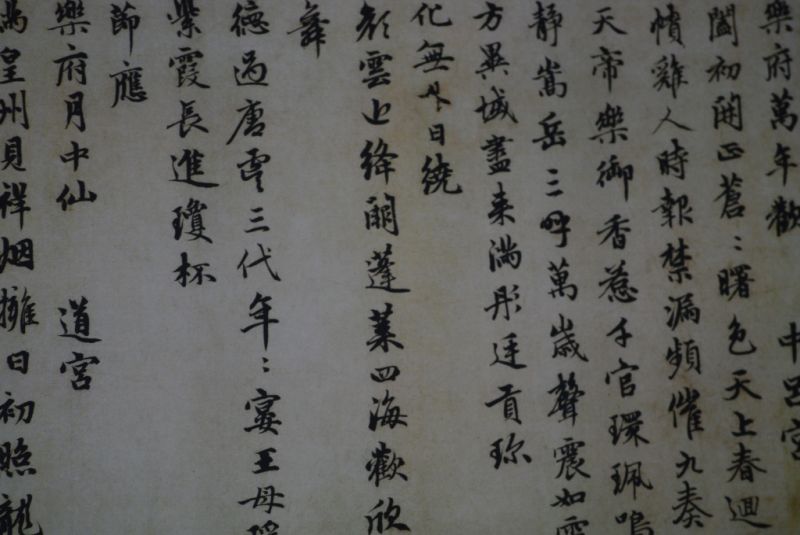 樂府萬年歡 中呂宮
闔初開正蒼〻曙色天上春迴
幘雞人時報禁漏頻催九奏
天帝樂御香惹千官環珮鳴
靜嵩岳三呼萬歲聲震如雷
方異域盡来滿彤廷貢珎
化無 日繞
彩雲上絳闕蓬萊四海歡欣
舜
德過唐虞三代年〻宴王母瑶
紫霞長進瓊杯
節應
樂府月中仙 道宮
為皇州貝祥烟擁日初照龍